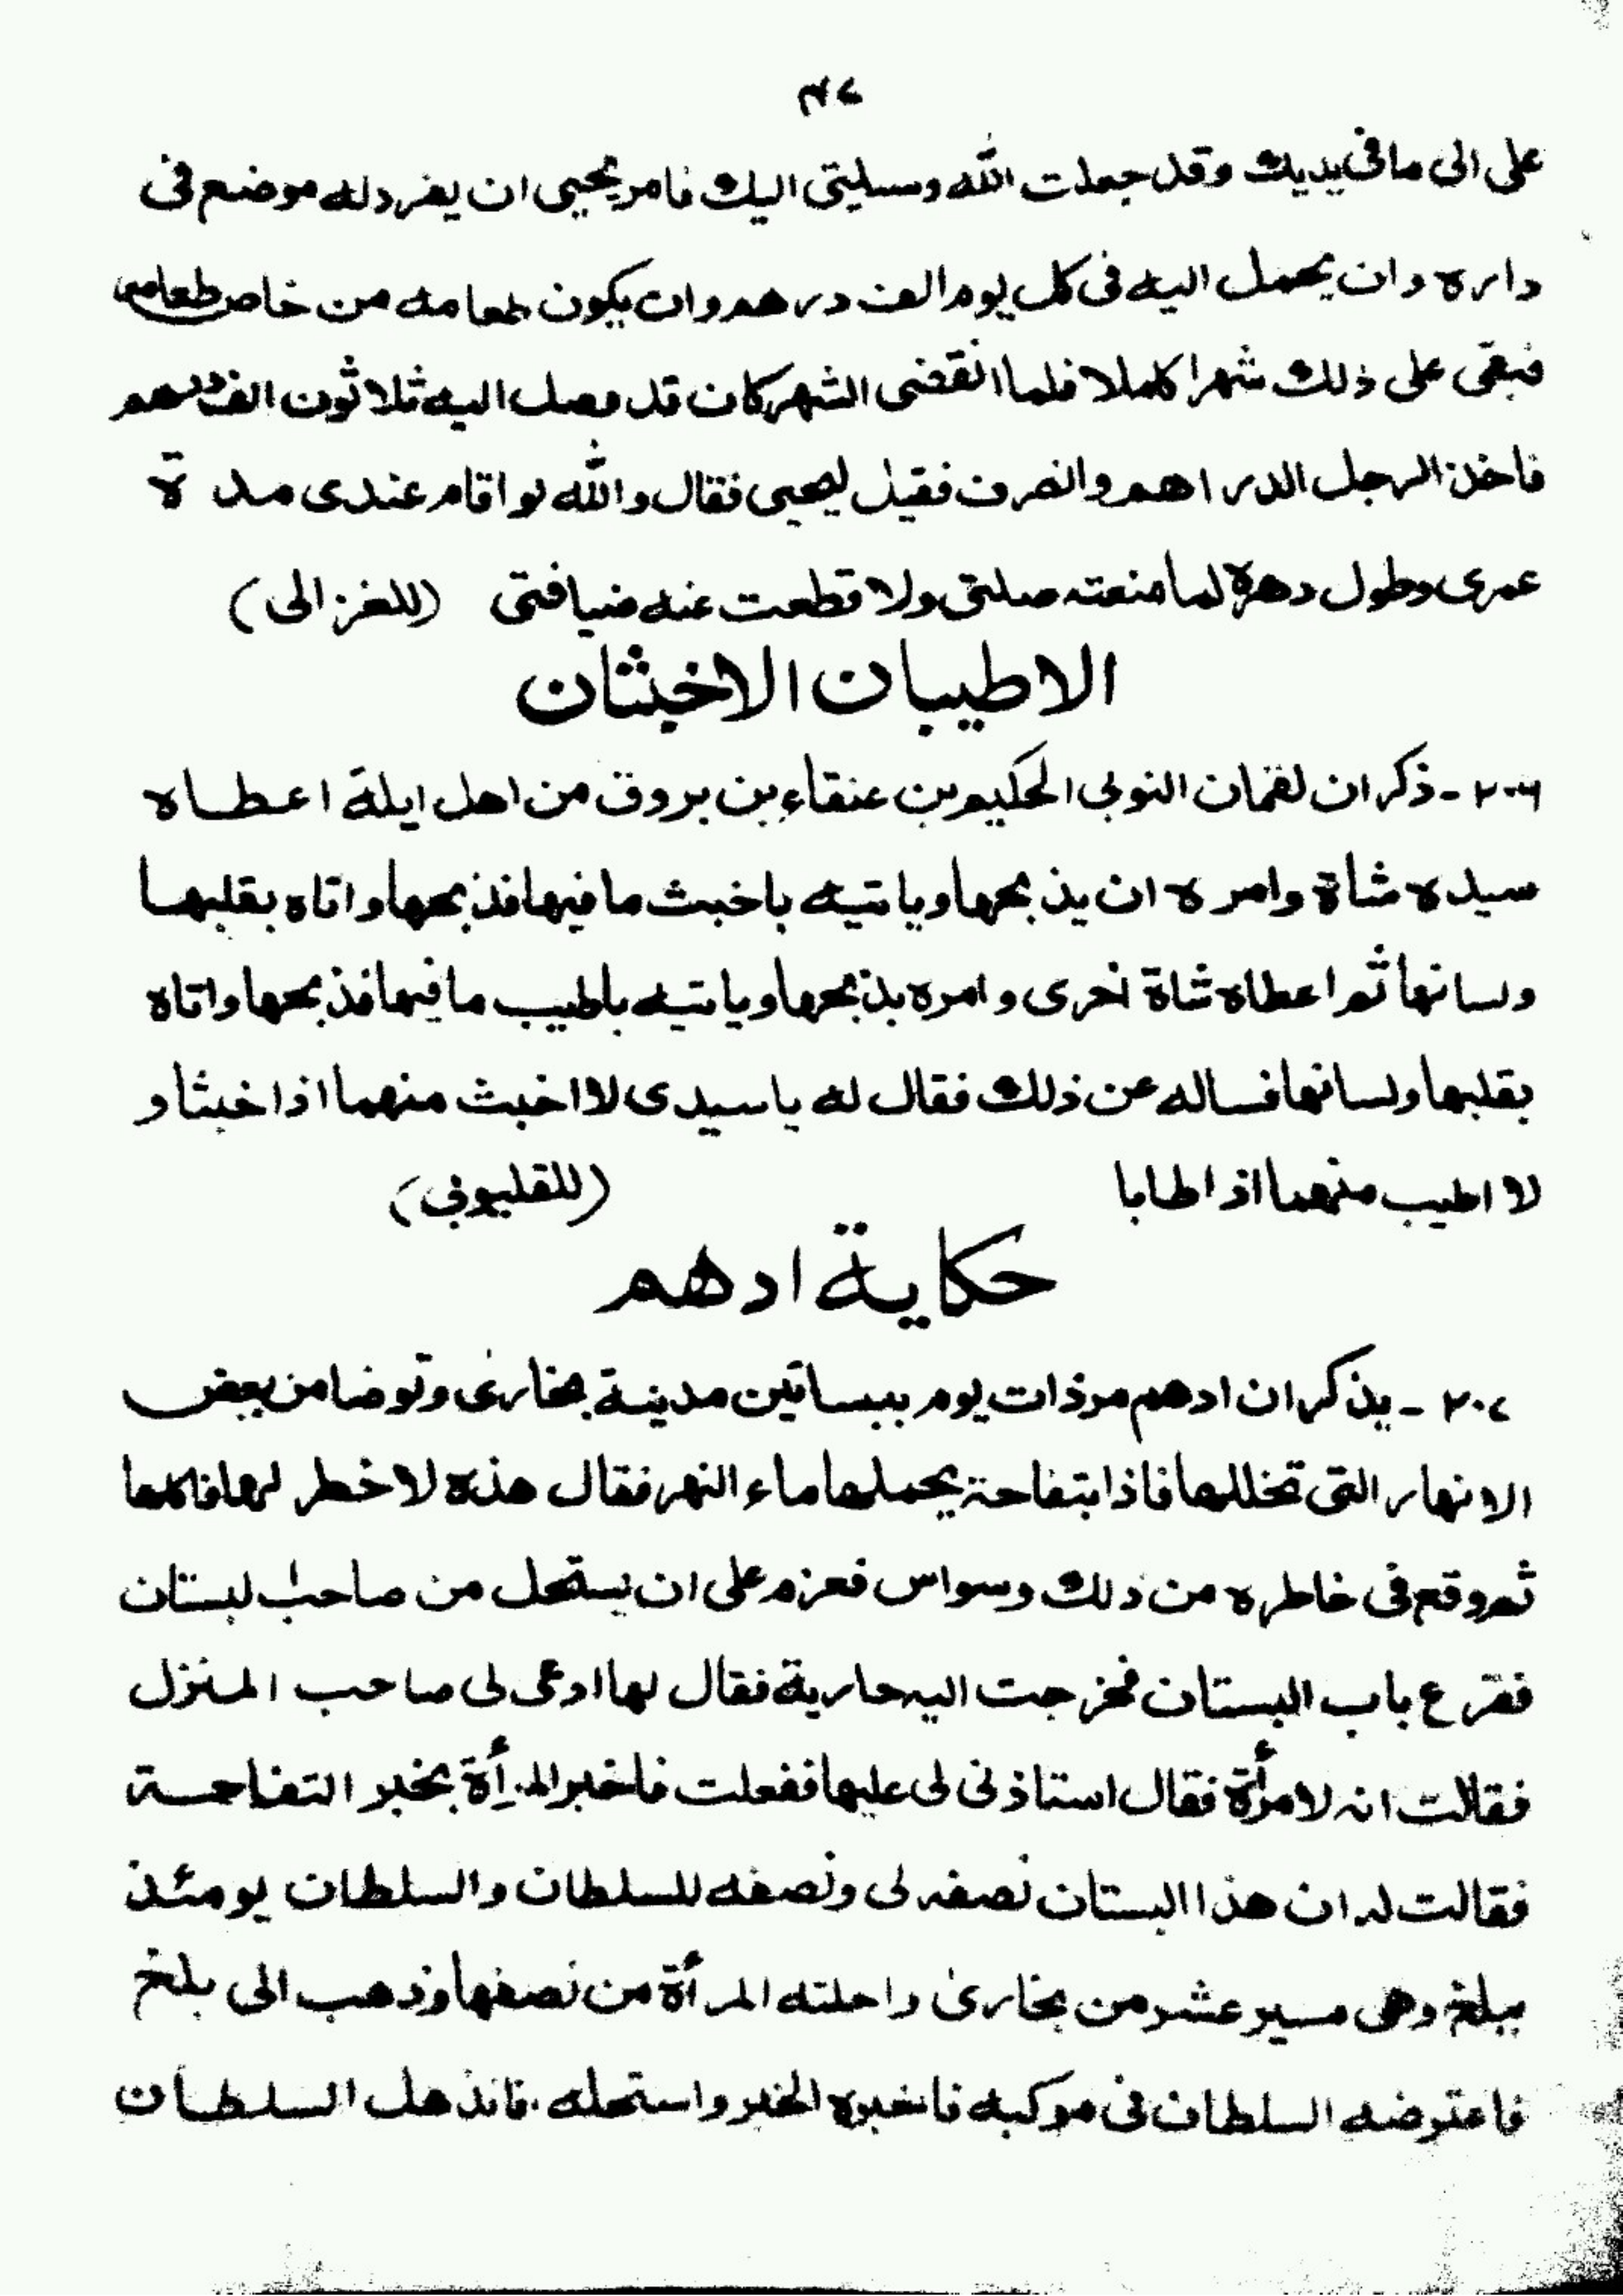 ٣٤٧
على الى ما فى يديك وقد جعلت الله وسيلتى اليك فامر يحيى ان يفرد له موضع فى
داره وان يحمل اليه فى كل يوم الف درهم وان يكون طعامه من خاص طعامه
فبقى على ذلك شهرا كاملا فلما انقضى الشهر كان قد وصل اليه ثلاثون الف درهم
فاخذ الرجل الدراهم وانصرف فقيل ليحيى فقال والله لو اقام عندى مدة
عمرى وطول دهرة لما منعته صلتى ولا قطعت عنه ضيافتى (للغزالى)
الاطيبان الاخبثان
٢٠٦ - ذكر ان لقمان النوبى الحكيم بن عنقاء بن بروق من اهل ايلة اعطاه
سيده شاة وامره ان يذبحها وياتيه باخبث ما فيها فذبحها واتاه بقلبها
ولسانها ثم اعطاه شاة اخرى وامره بذبحها وياتيه باطيب ما فيها فذبحها واتاه
بقلبها ولسانها فساله عن ذلك فقال له ياسيدى لا اخبث منهما اذا خبثا و
لا اطيب منهما اذا طابا (للقليوبى)
حكاية ادهم
٢٠٧ - يذكر ان ادهم مر ذات يوم ببساتين مدينة بخارى وتوضا من بعض
الانهار التى تخللها فاذا بتفاحة يحملها ماء النهر فقال هذه لا خطر لها فاكلها
ثم وقع فى خاطره من ذلك وسواس فعزم على ان يستحل من صاحب البستان
فقرع باب البستان فخرجت اليه جارية فقال لها ادعى لى صاحب المنزل
فقالت انه لامرأة فقال استاذنى لى عليها ففعلت فاخبر المرأة بخبر التفاحة
فقالت له ان هذا البستان نصفه لى ونصفه للسلطان والسلطان يومئذ
ببلخ وهى مسير عشر من بخارى واحلته المرأة من نصفها وذهب الى بلخ
فاعترضه السلطان فى موكبه فاخبره الخبر واستحله. فانذهل السلطان